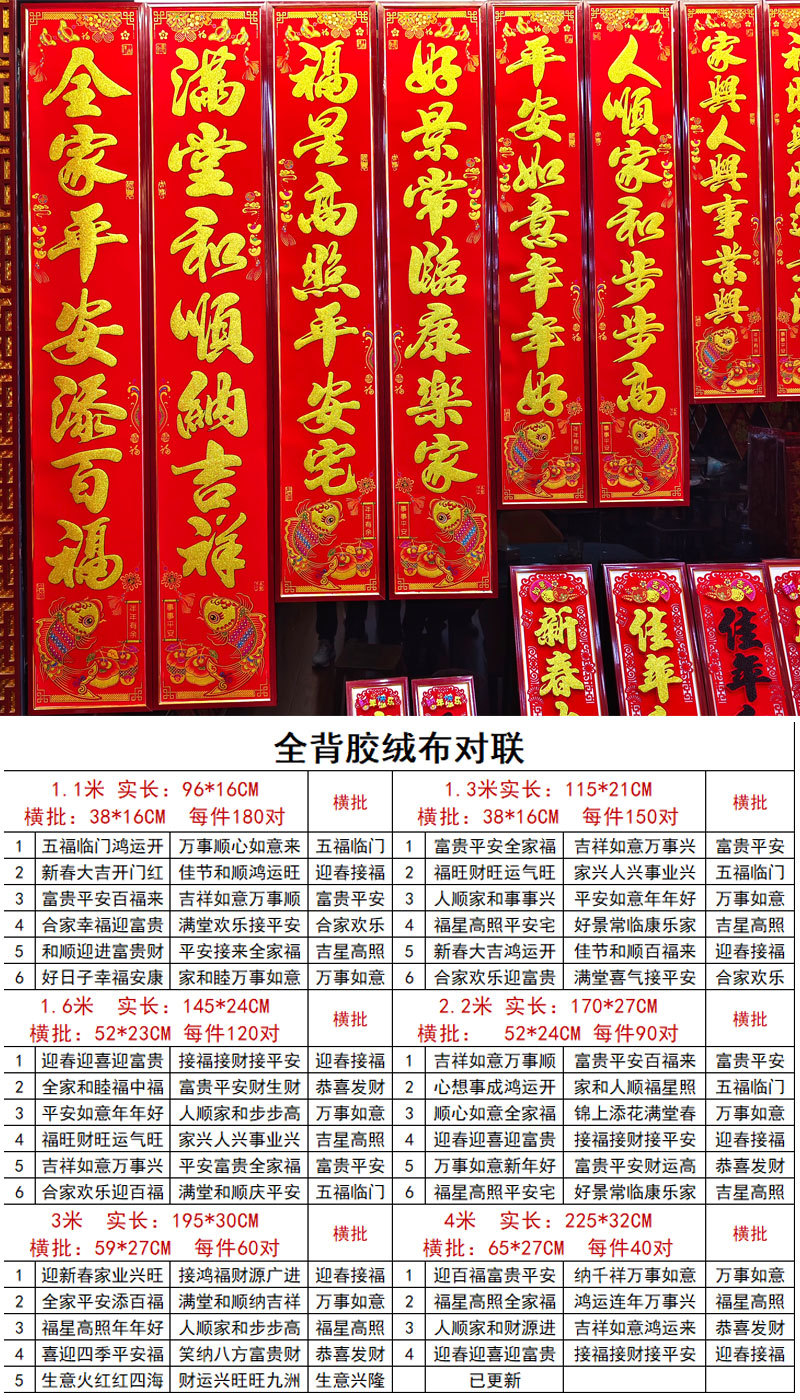 全家平安添百福
满堂和顺纳吉祥
福星高照平安宅
好景常临康樂家
平安如意年年好
人順家和步步高
家興人興事業興
年年有余
事事平安
年年有余
事事平安
年年有余
事事平安
新春
佳年
佳年
全背胶绒布对联
1.1米 实长：96*16CM
横批：38*16CM 每件180对
横批
1 五福临门鸿运开 万事顺心如意来 五福临门
2 新春大吉开门红 佳节和顺鸿运旺 迎春接福
3 富贵平安百福来 吉祥如意万事顺 富贵平安
4 合家幸福迎富贵 满堂欢乐接平安 合家欢乐
5 和顺迎进富贵财 平安接来全家福 吉星高照
6 好日子幸福安康 家和睦万事如意 万事如意
1.3米 实长：115*21CM
横批：38*16CM 每件150对
横批
1 富贵平安全家福 吉祥如意万事兴 富贵平安
2 福旺财旺运气旺 家兴人兴事业兴 五福临门
3 人顺家和事事兴 平安如意年年好 万事如意
4 福星高照平安宅 好景常临康乐家 吉星高照
5 新春大吉鸿运开 佳节和顺百福来 迎春接福
6 合家欢乐迎富贵 满堂喜气接平安 合家欢乐
1.6米 实长：145*24CM
横批：52*23CM 每件120对
横批
1 迎春迎喜迎富贵 接福接财接平安 迎春接福
2 全家和睦福中福 富贵平安财生财 恭喜发财
3 平安如意年年好 人顺家和步步高 万事如意
4 福旺财旺运气旺 家兴人兴事业兴 吉星高照
5 吉祥如意万事兴 平安富贵全家福 富贵平安
6 合家欢乐迎百福 满堂和顺庆平安 五福临门
2.2米 实长：170*27CM
横批： 52*24CM 每件90对
横批
1 吉祥如意万事顺 富贵平安百福来 富贵平安
2 心想事成鸿运开 家和人顺福星照 五福临门
3 顺心如意全家福 锦上添花满堂春 万事如意
4 迎春迎喜迎富贵 接福接财接平安 迎春接福
5 万事如意新年好 富贵平安财运高 恭喜发财
6 福星高照平安宅 好景常临康乐家 吉星高照
3米 实长：195*30CM
横批：59*27CM 每件60对
横批
1 迎新春家业兴旺 接鸿福财源广进 迎春接福
2 全家平安添百福 满堂和顺纳吉祥 万事如意
3 福星高照年年好 人顺家和步步高 福星高照
4 喜迎四季平安福 笑纳八方富贵财 万事如意
5 生意火红红四海 财运兴旺旺九洲 生意兴隆
4米 实长：225*32CM
横批：65*27CM 每件40对
横批
1 迎百福富贵平安 纳千祥万事如意 万事如意
2 福星高照全家福 鸿运连年万事兴 福星高照
3 人顺家和财源进 吉祥如意鸿运来 恭喜发财
4 迎春迎喜迎富贵 接福接财接平安 迎春接福
已更新